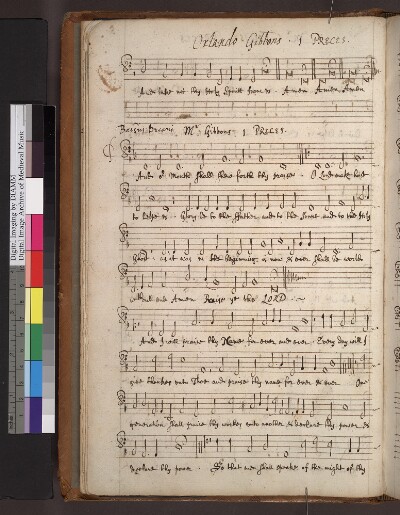 Orlando Gibbons . 1 PRECES.
And take not thy holy spirit from us . Amen Amen Amen
Mr Gibbons 1 PRECES.
And or Mouth shall shew forth thy prayse . O Lord make hast
to helpe us . Glory be to the ffather and to the Sonne and to the holy
Ghost : as it was in the beginning is now & ever shall be world
without end Amen Prayse ye the LORD
And I will praise thy Name for ever and ever . Every day will I
give thankes unto Thee and praise thy name for ever & ever One
generation shall praise thy workes unto another & declare thy power &
declare thy power . So that men shall speake of the might of thy
Digital Imaging by DIAMM
Digital Image Archive of Medieval Music